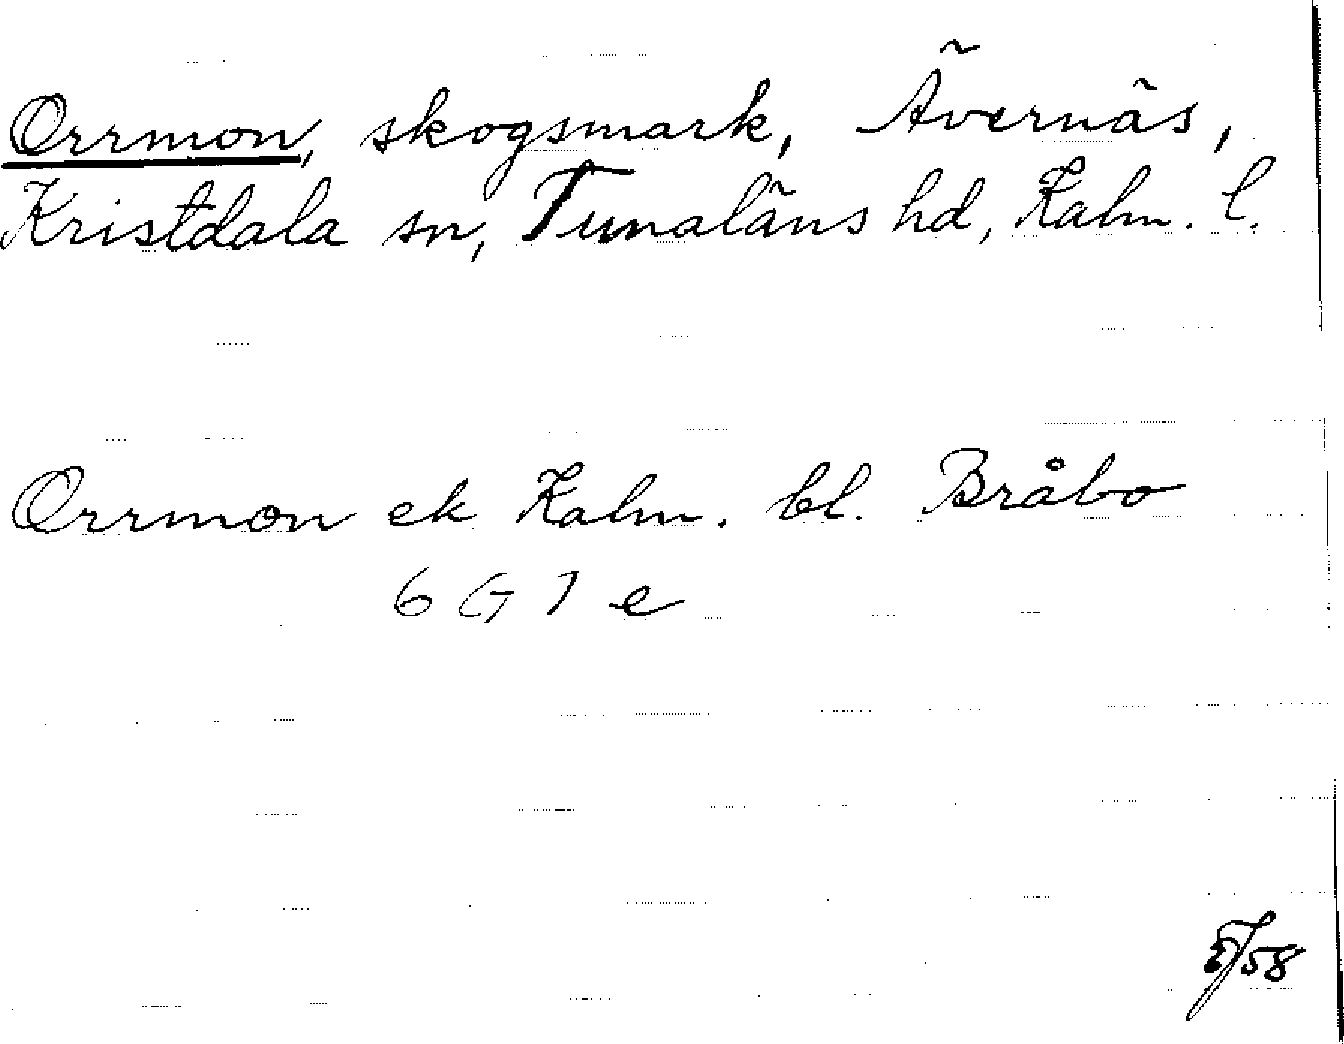 Orrmon, skogsmark, Ävernäs,
Kristdala sn, Tunaläns hd, Kalm. l.
Orrmon ek Kalm. bl. Bråbo
6 G 7 e